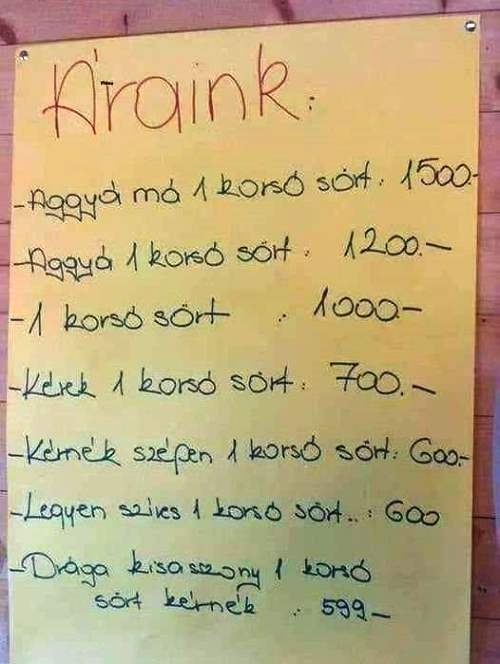 Áraink:
-Aggyá má 1 korsó sört: 1500.-
-Aggyá 1 korsó sört: 1200.-
-1 korsó sört : 1000.-
-Kérek 1 korsó sört: 700.-
-Kérnék szépen 1 korsó sört: 600.-
-Legyen szíves 1 korsó sört..: 600
-Drága kisasszony 1 korsó
sört kérnék : 599-